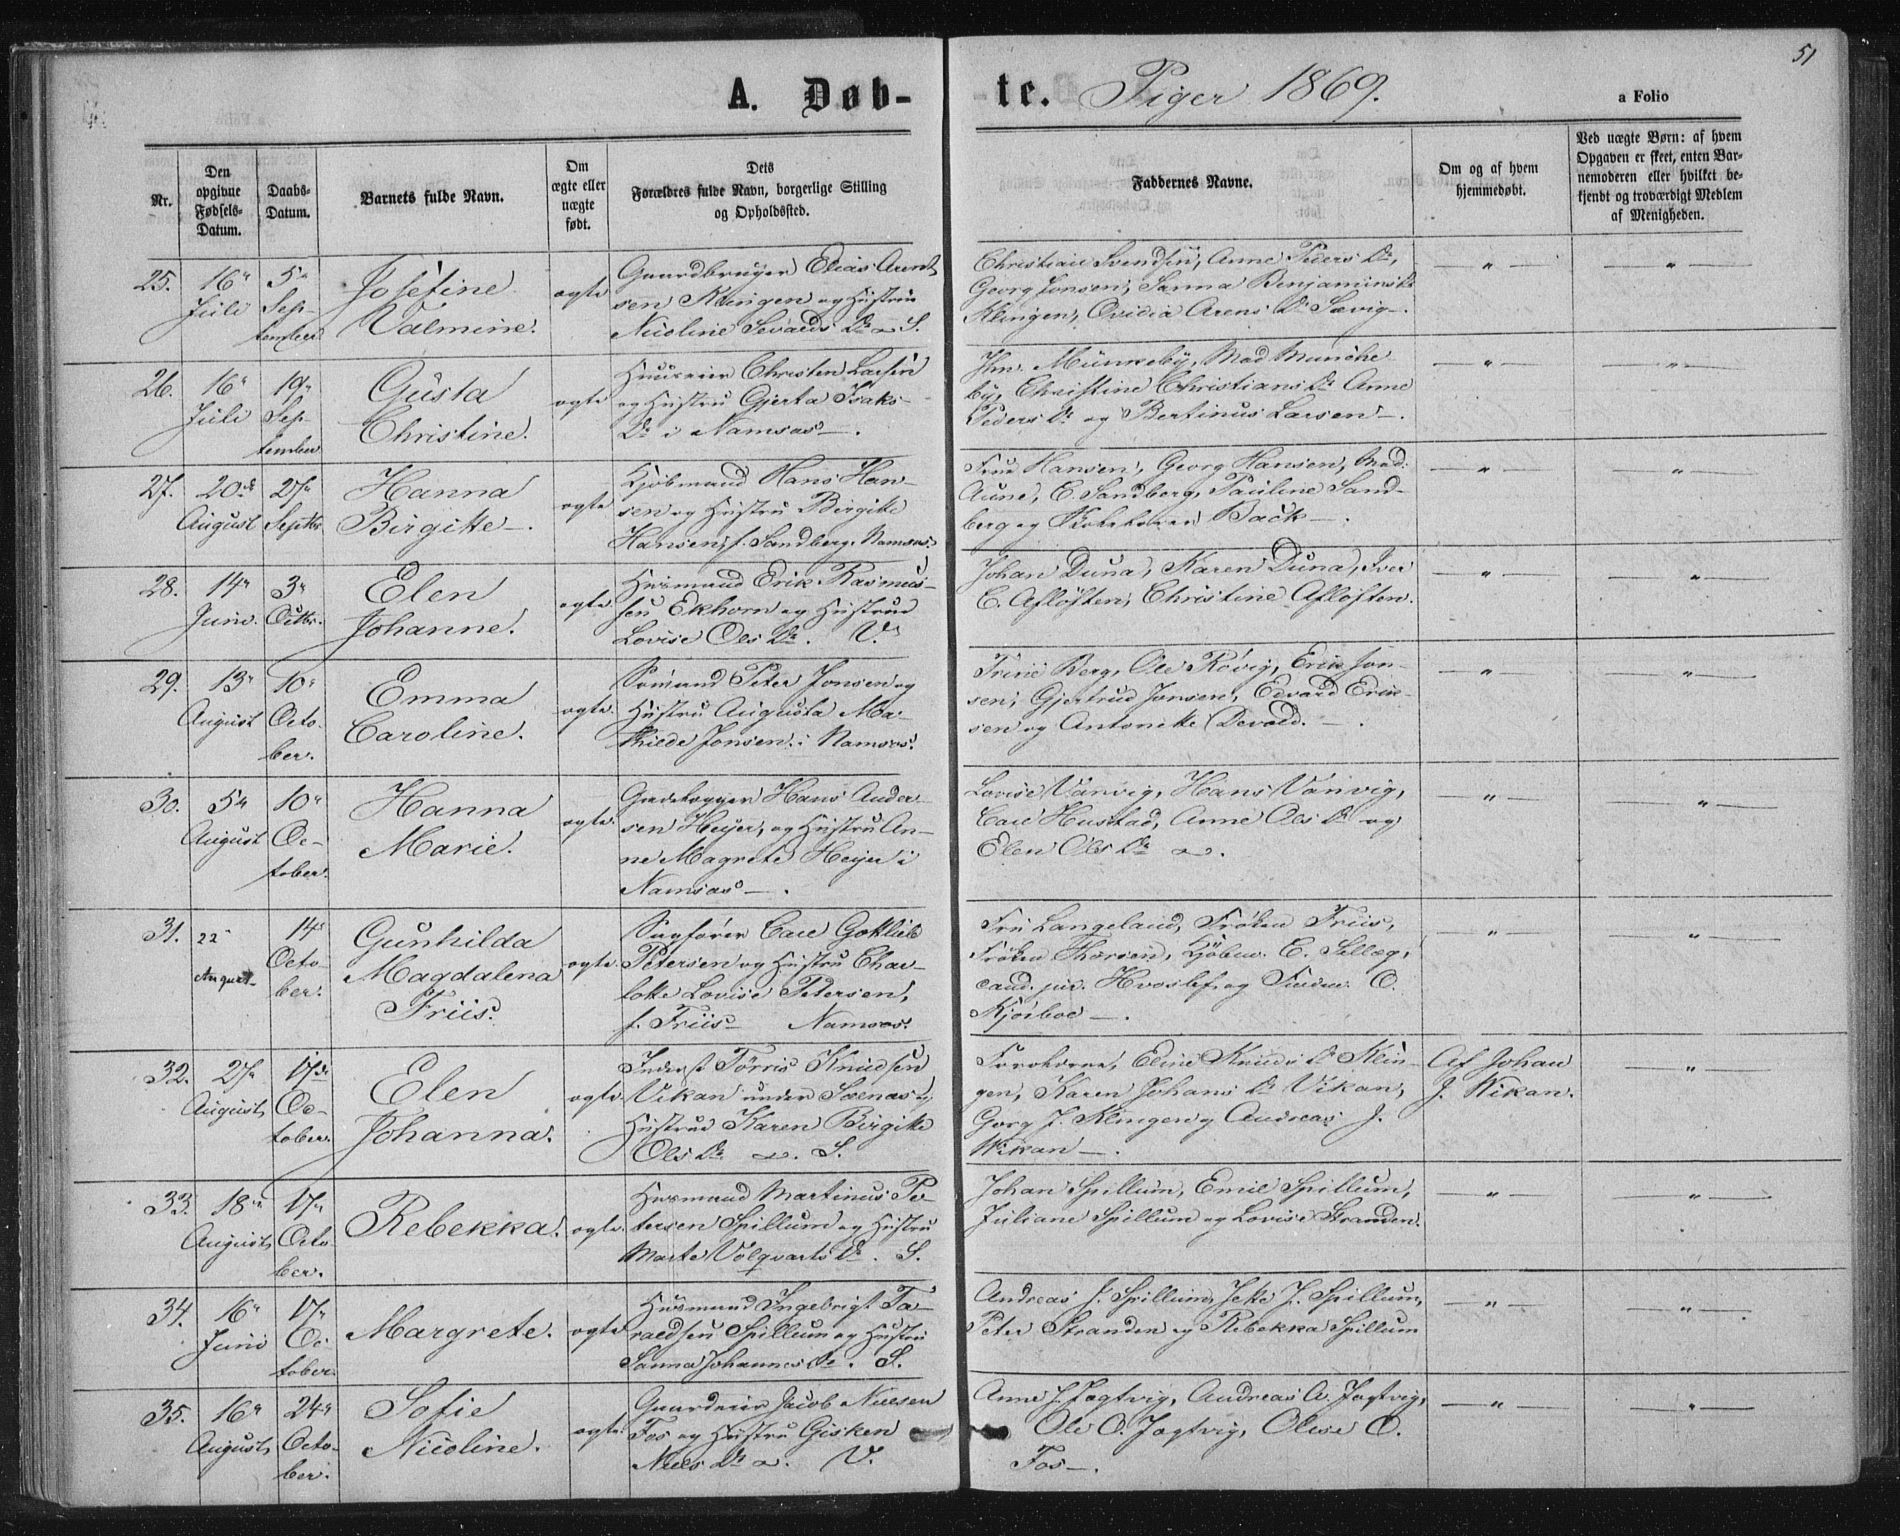 51
A. Døb-
te. Piger 1869.
a Folio
Nr.
Den opgivne Fødsels-Datum.
Daabs-Datum.
Barnets fulde Navn.
Om ægte eller uægte født.
Dets Forældres fulde Navn, borgerlige Stilling og Opholdssted.
Faddernes Navne.
Om og af hvem hjemmedøbt.
Ved uægte Børn: af hvem Opgaven er skeet, enten Barnemoderen eller hvilket bekjendt og troværdigt Medlem af Menigheden.
25. 16" Juli 5" September
Josefine
Valmine.
ægte
Gaardbruger Elias Arent
sen Klingen og Hustru
Nicoline Sevalds Dr S.
Christian Svendsen, Anne Peders Dr,
Georg Jonsen, Sanna Benjaminsdr
Klingen, Ovidia Arens Dr Sævig.
26. 16" Juli 19" September
Gusta
Christine.
ægte
Huuseier Christen Larsen
og Hustru Gjerta Isaks-
Dr i Namsos.
Munkeby, Mad Munche
by, Christine Christians Dr Anne
Peders Dr og Bertinus Larsen.
27. 20de August 27" Septbr
Hanna
Birgitte.
ægte
Kjøbmand Hans Han-
sen og Hustru Birgitte
Hansen, f. Sandberg, Namsos.
Frue Hansen, Georg Hansen, Mad:
Aune, C. Sandberg, Pauline Sand-
berg og Back.
28. 14" Juni. 3" Octbr.
Elen
Johanne.
ægte
Husmand Erik Rasmus-
sen Ekhorn og Hustrue
Lovise Ols Dr. V.
Johan Duna, Karen Duna, Iver
C. Afløften, Christine Afløften.
29. 13" August 10" October.
Emma
Caroline.
ægte.
Sømand Peter Jonsen og
Hustru Augusta Ma-
thilde Jonsen i Namsos.
Trine Berg, Ole Røvig, Erik Jon-
sen, Gjertrud Jonsen, Edvard Erik-
sen og Antonette Devold.
30. 5" August 10" October.
Hanna
Marie.
ægte.
Hans Ander-
sen Heyer, og Hustru An-
ne Magrete Heyer i
Namsos.
Lovise Vanvig, Hans Vanvig,
Carl Hustad, Anne Ols Dr og
Elen Ols Dr
31. 22" August 14" October.
Gunhilda
Magdalena
Friis.
ægte.
Sagfører Carl Gottlieb
Petersen og Hustru Char-
lotte Lovise Petersen,
f. Friis Namsos.
Fru Langeland, Frøken Friis,
Frøken Thorsen, Kjøbm. C. Sellæg,
cand. jur. Hvoslef og O.
Kjørboe.
32. 27" August 17de October.
Elen
Johanna.
ægte
Inderst Tørris Knudsen
Vikan under Sænes og
Hustrue Karen Birgitte
Ols Dr S.
Eline Knuds Dr Klin-
gen, Karen Johans Dr Vikan,
Gorg J. Klingen og Andreas J.
Wikan.
Af Johan
J. Wikan.
33. 18" August 17" October.
Rebekka.
ægte.
Husmand Martinus Pe-
tersen Spillum og Hustru
Marte Volqvarts Dr. S.
Johan Spillum, Emil Spillum,
Juliane Spillum og Lovise Stranden.
34. 16" Juni 17" October
Margrete.
ægte
Husmand Ingebrigt To-
raldsen Spillum og Hustru
Sanna Johannes Dr. S.
Andreas J. Spillum, Jette J. Spillum,
Peter Stranden og Rebekka Spillum
35. 16" August 24" October.
Sofie
Nicoline.
ægte
Gaardeier Jacob Nielsen
Fos og Hustru Gisken
Niels Dr V.
Anne J. Jagtvig, Andreas A. Jagtvig,
Ole O. Jagtvig, Oline O.
Fos.